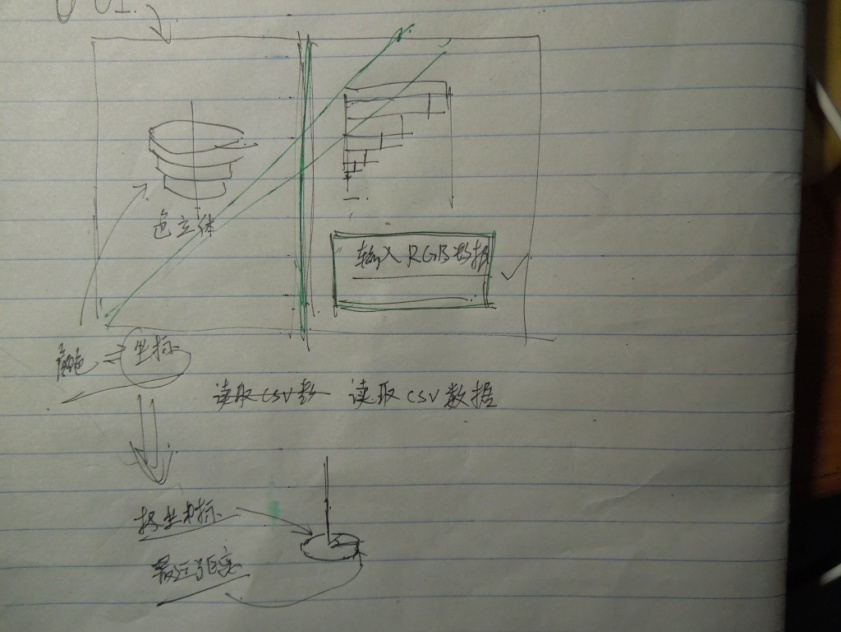 色立体
输入RGB数据
颜色=坐标
读取CSV数 读取CSV数据
找坐标
最近距离